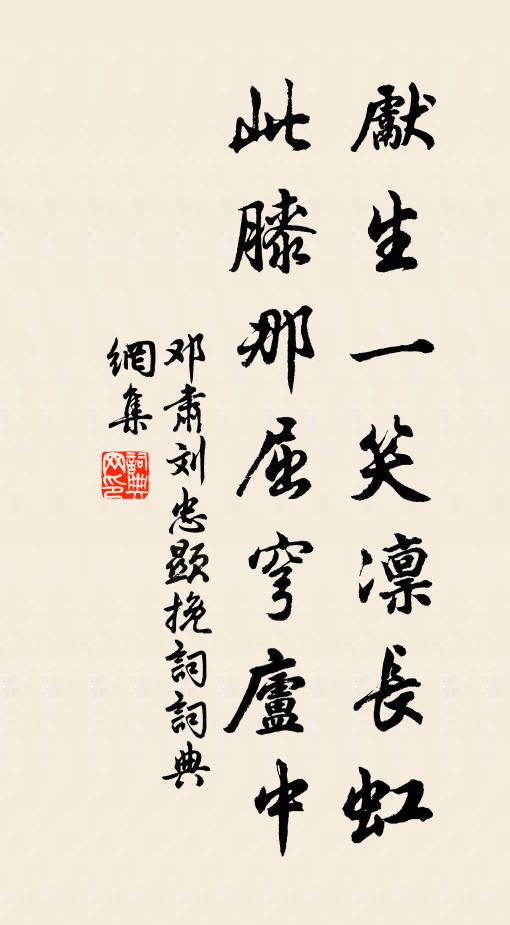 獻生一笑凜長虹
此膝那屈穹廬中
邓肅刘忠顯挽詞詞典
網集
詞典
网印